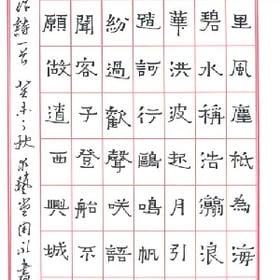 里風塵祗為海
碧水稱浩瀚浪
華洪波起月引
訶行鷗鳴帆
紛過歡聲咲語
聞客子登船不
願做西興城
詩一首 癸未之秋 藝堂書